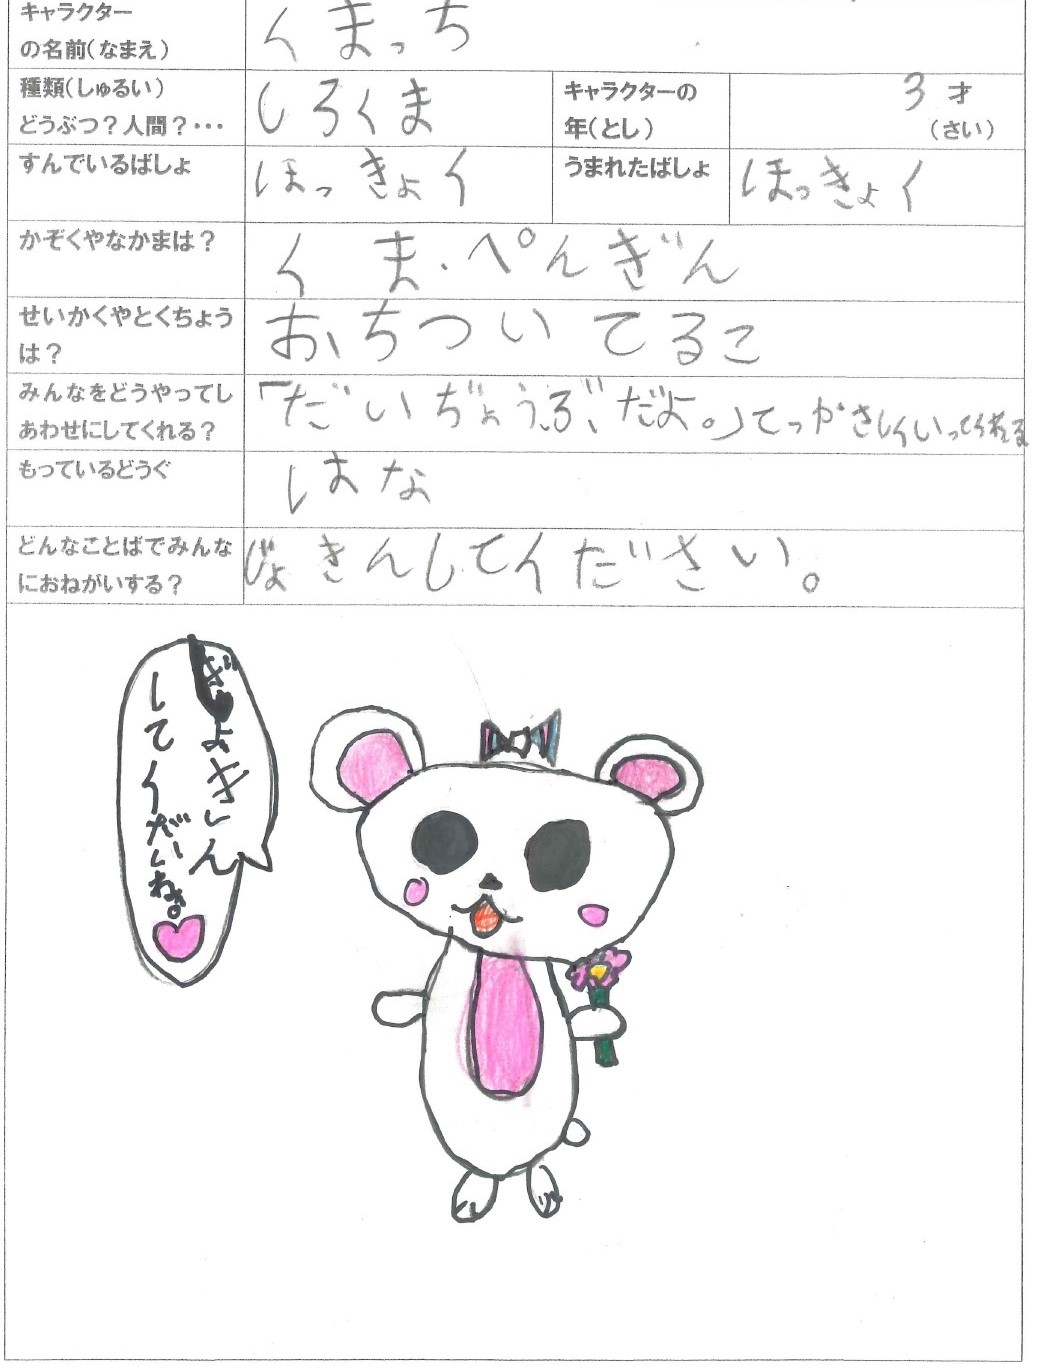 キャラクター
の名前(なまえ)
くまっち
種類(しゅるい)
どうぶつ？人間？・・・
しろくま
キャラクターの
年(とし)
3 才
(さい)
すんでいるばしょ
ほっきょく
うまれたばしょ
ほっきょく
かぞくやなかまは？
くま・ぺんぎん
せいかくやとくちょう
は？
おちついてるこ
みんなをどうやってし
あわせにしてくれる？
「だいぢょうぶ、だよ。」てっかさしくいってくれる
もっているどうぐ
はな
どんなことばでみんな
におねがいする？
じょきんしてください。
ょきん
してくだいね。